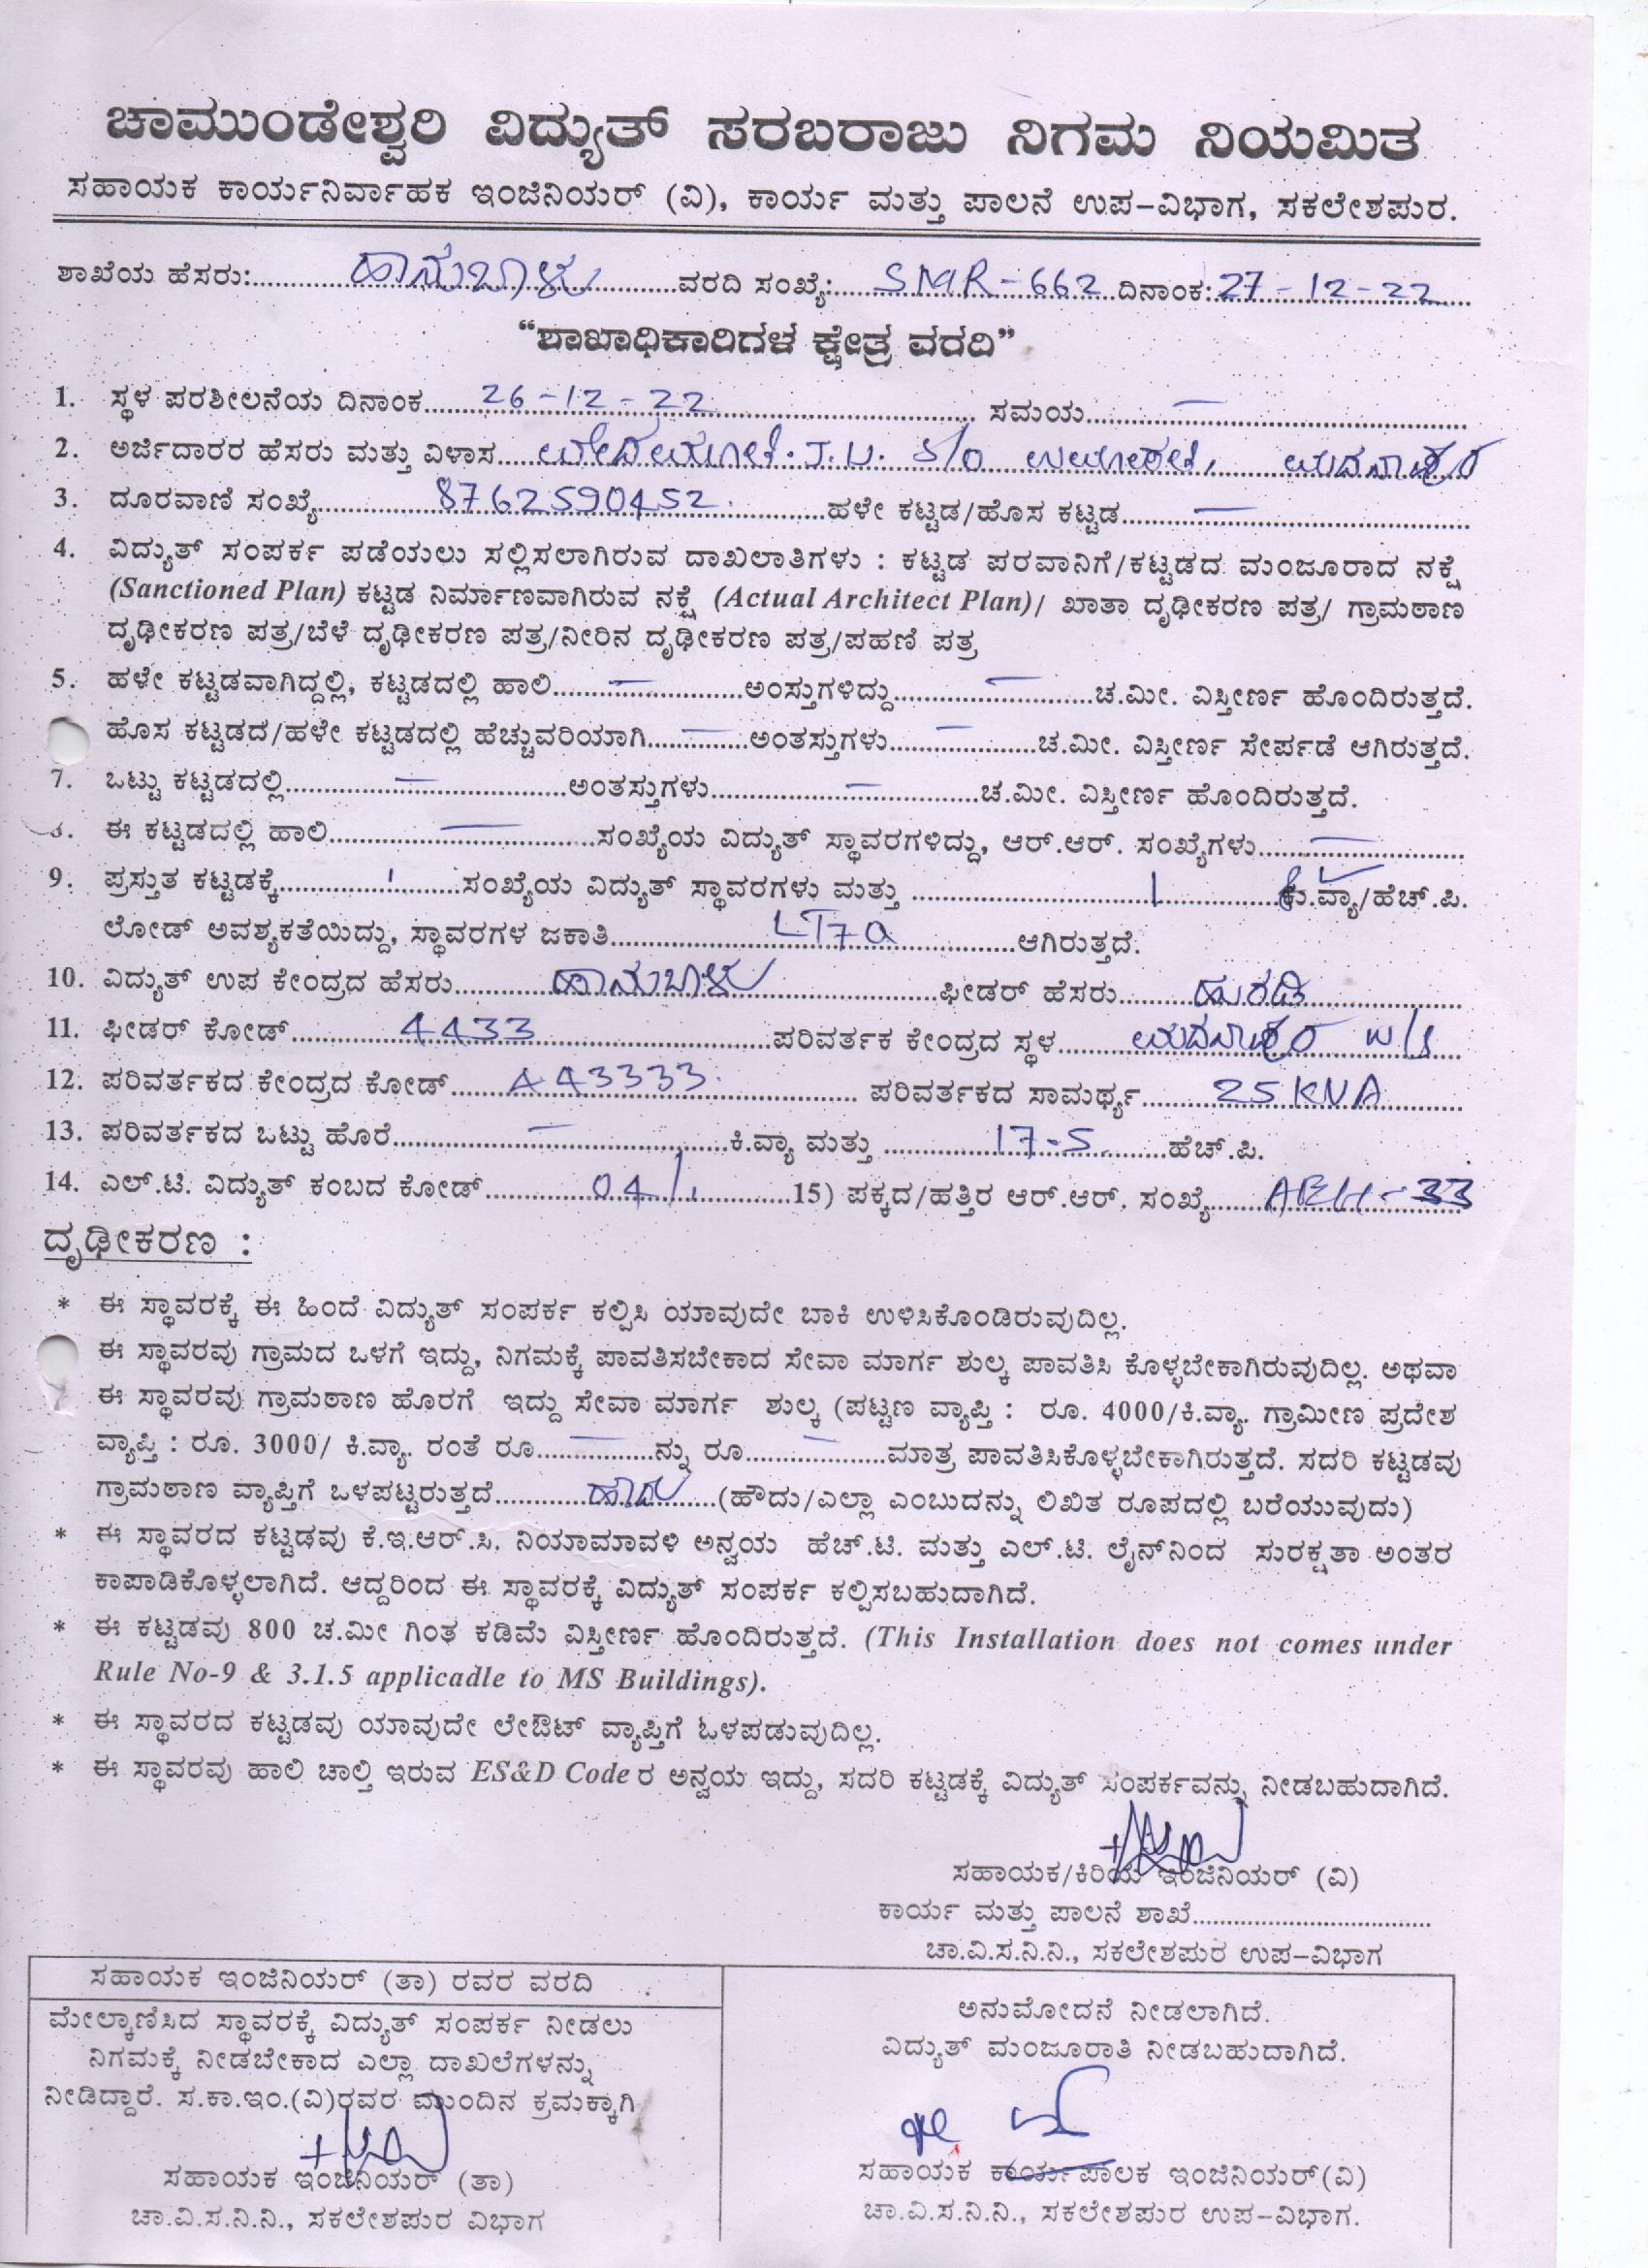 ಚಾಮುಂಡೇಶ್ವರಿ ವಿದ್ಯುತ್ ಸರಬರಾಜು ನಿಗಮ ನಿಯಮಿತ
ಸಹಾಯಕ ಕಾರ್ಯನಿರ್ವಾಹಕ ಇಂಜಿನಿಯರ್ (ವಿ), ಕಾರ್ಯ ಮತ್ತು ಪಾಲನೆ ಉಪ-ವಿಭಾಗ, ಸಕಲೇಶಪುರ.
ಶಾಖೆಯ ಹೆಸರು: ಹಾನುಬಾಳು ವರದಿ ಸಂಖ್ಯೆ: SMR-662 ದಿನಾಂಕ: 27-12-22
“ಶಾಖಾಧಿಕಾರಿಗಳ ಕ್ಷೇತ್ರ ವರದಿ”
1. ಸ್ಥಳ ಪರಶೀಲನೆಯ ದಿನಾಂಕ 26-12-22 ಸಮಯ —
2. ಅರ್ಜಿದಾರರ ಹೆಸರು ಮತ್ತು ವಿಳಾಸ J.U. S/o
3. ದೂರವಾಣಿ ಸಂಖ್ಯೆ 8762590452. ಹಳೇ ಕಟ್ಟಡ/ಹೊಸ ಕಟ್ಟಡ —
4. ವಿದ್ಯುತ್ ಸಂಪರ್ಕ ಪಡೆಯಲು ಸಲ್ಲಿಸಲಾಗಿರುವ ದಾಖಲಾತಿಗಳು : ಕಟ್ಟಡ ಪರವಾನಿಗೆ/ಕಟ್ಟಡದ ಮಂಜೂರಾದ ನಕ್ಷೆ
(Sanctioned Plan) ಕಟ್ಟಡ ನಿರ್ಮಾಣವಾಗಿರುವ ನಕ್ಷೆ (Actual Architect Plan)/ ಖಾತಾ ದೃಢೀಕರಣ ಪತ್ರ/ ಗ್ರಾಮಠಾಣ
ದೃಢೀಕರಣ ಪತ್ರ/ಬೆಳೆ ದೃಢೀಕರಣ ಪತ್ರ/ನೀರಿನ ದೃಢೀಕರಣ ಪತ್ರ/ಪಹಣಿ ಪತ್ರ
5. ಹಳೇ ಕಟ್ಟಡವಾಗಿದ್ದಲ್ಲಿ, ಕಟ್ಟಡದಲ್ಲಿ ಹಾಲಿ — ಅಂಸ್ತುಗಳಿದ್ದು — ಚ.ಮೀ. ವಿಸ್ತೀರ್ಣ ಹೊಂದಿರುತ್ತದೆ.
ಹೊಸ ಕಟ್ಟಡದ/ಹಳೇ ಕಟ್ಟಡದಲ್ಲಿ ಹೆಚ್ಚುವರಿಯಾಗಿ — ಅಂತಸ್ತುಗಳು — ಚ.ಮೀ. ವಿಸ್ತೀರ್ಣ ಸೇರ್ಪಡೆ ಆಗಿರುತ್ತದೆ.
7. ಒಟ್ಟು ಕಟ್ಟಡದಲ್ಲಿ — ಅಂತಸ್ತುಗಳು — ಚ.ಮೀ. ವಿಸ್ತೀರ್ಣ ಹೊಂದಿರುತ್ತದೆ.
8. ಈ ಕಟ್ಟಡದಲ್ಲಿ ಹಾಲಿ — ಸಂಖ್ಯೆಯ ವಿದ್ಯುತ್ ಸ್ಥಾವರಗಳಿದ್ದು, ಆರ್.ಆರ್. ಸಂಖ್ಯೆಗಳು —
9. ಪ್ರಸ್ತುತ ಕಟ್ಟಡಕ್ಕೆ 1 ಸಂಖ್ಯೆಯ ವಿದ್ಯುತ್ ಸ್ಥಾವರಗಳು ಮತ್ತು 1 ಕಿ.ವ್ಯಾ/ಹೆಚ್.ಪಿ.
ಲೋಡ್ ಅವಶ್ಯಕತೆಯಿದ್ದು, ಸ್ಥಾವರಗಳ ಜಕಾತಿ LT7a ಆಗಿರುತ್ತದೆ.
10. ವಿದ್ಯುತ್ ಉಪ ಕೇಂದ್ರದ ಹೆಸರು ಹಾನುಬಾಳು ಫೀಡರ್ ಹೆಸರು ಹುರಡಿ
11. ಫೀಡರ್ ಕೋಡ್ 4433 ಪರಿವರ್ತಕ ಕೇಂದ್ರದ ಸ್ಥಳ W/S
12. ಪರಿವರ್ತಕದ ಕೇಂದ್ರದ ಕೋಡ್ A43333. ಪರಿವರ್ತಕದ ಸಾಮರ್ಥ್ಯ 25 KVA
13. ಪರಿವರ್ತಕದ ಒಟ್ಟು ಹೊರೆ — ಕಿ.ವ್ಯಾ ಮತ್ತು 17-5 ಹೆಚ್.ಪಿ.
14. ಎಲ್.ಟಿ. ವಿದ್ಯುತ್ ಕಂಬದ ಕೋಡ್ 04/1 15) ಪಕ್ಕದ/ಹತ್ತಿರ ಆರ್.ಆರ್. ಸಂಖ್ಯೆ AEH-33
ದೃಢೀಕರಣ :
* ಈ ಸ್ಥಾವರಕ್ಕೆ ಈ ಹಿಂದೆ ವಿದ್ಯುತ್ ಸಂಪರ್ಕ ಕಲ್ಪಿಸಿ ಯಾವುದೇ ಬಾಕಿ ಉಳಿಸಿಕೊಂಡಿರುವುದಿಲ್ಲ.
ಈ ಸ್ಥಾವರವು ಗ್ರಾಮದ ಒಳಗೆ ಇದ್ದು, ನಿಗಮಕ್ಕೆ ಪಾವತಿಸಬೇಕಾದ ಸೇವಾ ಮಾರ್ಗ ಶುಲ್ಕ ಪಾವತಿಸಿ ಕೊಳ್ಳಬೇಕಾಗಿರುವುದಿಲ್ಲ. ಅಥವಾ
ಈ ಸ್ಥಾವರವು ಗ್ರಾಮಠಾಣ ಹೊರಗೆ ಇದ್ದು ಸೇವಾ ಮಾರ್ಗ ಶುಲ್ಕ (ಪಟ್ಟಣ ವ್ಯಾಪ್ತಿ : ರೂ. 4000/ಕಿ.ವ್ಯಾ. ಗ್ರಾಮೀಣ ಪ್ರದೇಶ
ವ್ಯಾಪ್ತಿ : ರೂ. 3000/ ಕಿ.ವ್ಯಾ. ರಂತೆ ರೂ — ನ್ನು ರೂ — ಮಾತ್ರ ಪಾವತಿಸಿಕೊಳ್ಳಬೇಕಾಗಿರುತ್ತದೆ. ಸದರಿ ಕಟ್ಟಡವು
ಗ್ರಾಮಠಾಣ ವ್ಯಾಪ್ತಿಗೆ ಒಳಪಟ್ಟರುತ್ತದೆ ಹೌದು (ಹೌದು/ಎಲ್ಲಾ ಎಂಬುದನ್ನು ಲಿಖಿತ ರೂಪದಲ್ಲಿ ಬರೆಯುವುದು)
* ಈ ಸ್ಥಾವರದ ಕಟ್ಟಡವು ಕೆ.ಇ.ಆರ್.ಸಿ. ನಿಯಾಮಾವಳಿ ಅನ್ವಯ ಹೆಚ್.ಟಿ. ಮತ್ತು ಎಲ್.ಟಿ. ಲೈನ್‌ನಿಂದ ಸುರಕ್ಷತಾ ಅಂತರ
ಕಾಪಾಡಿಕೊಳ್ಳಲಾಗಿದೆ. ಆದ್ದರಿಂದ ಈ ಸ್ಥಾವರಕ್ಕೆ ವಿದ್ಯುತ್ ಸಂಪರ್ಕ ಕಲ್ಪಿಸಬಹುದಾಗಿದೆ.
* ಈ ಕಟ್ಟಡವು 800 ಚ.ಮೀ ಗಿಂತ ಕಡಿಮೆ ವಿಸ್ತೀರ್ಣ ಹೊಂದಿರುತ್ತದೆ. (This Installation does not comes under
Rule No-9 & 3.1.5 applicadle to MS Buildings).
* ಈ ಸ್ಥಾವರದ ಕಟ್ಟಡವು ಯಾವುದೇ ಲೇಔಟ್ ವ್ಯಾಪ್ತಿಗೆ ಓಳಪಡುವುದಿಲ್ಲ.
* ಈ ಸ್ಥಾವರವು ಹಾಲಿ ಚಾಲ್ತಿ ಇರುವ ES&D Code ರ ಅನ್ವಯ ಇದ್ದು, ಸದರಿ ಕಟ್ಟಡಕ್ಕೆ ವಿದ್ಯುತ್ ಸಂಪರ್ಕವನ್ನು ನೀಡಬಹುದಾಗಿದೆ.
ಸಹಾಯಕ/ಕಿರಿಯ ಇಂಜಿನಿಯರ್ (ವಿ)
ಕಾರ್ಯ ಮತ್ತು ಪಾಲನೆ ಶಾಖೆ
ಚಾ.ವಿ.ಸ.ನಿ.ನಿ., ಸಕಲೇಶಪುರ ಉಪ-ವಿಭಾಗ
ಸಹಾಯಕ ಇಂಜಿನಿಯರ್ (ತಾ) ರವರ ವರದಿ
ಮೇಲ್ಕಾಣಿಸಿದ ಸ್ಥಾವರಕ್ಕೆ ವಿದ್ಯುತ್ ಸಂಪರ್ಕ ನೀಡಲು
ನಿಗಮಕ್ಕೆ ನೀಡಬೇಕಾದ ಎಲ್ಲಾ ದಾಖಲೆಗಳನ್ನು
ನೀಡಿದ್ದಾರೆ. ಸ.ಕಾ.ಇಂ.(ವಿ)ರವರ ಮುಂದಿನ ಕ್ರಮಕ್ಕಾಗಿ
ಸಹಾಯಕ ಇಂಜಿನಿಯರ್ (ತಾ)
ಚಾ.ವಿ.ಸ.ನಿ.ನಿ., ಸಕಲೇಶಪುರ ವಿಭಾಗ
ಅನುಮೋದನೆ ನೀಡಲಾಗಿದೆ.
ವಿದ್ಯುತ್ ಮಂಜೂರಾತಿ ನೀಡಬಹುದಾಗಿದೆ.
ಸಹಾಯಕ ಕಾರ್ಯಪಾಲಕ ಇಂಜಿನಿಯರ್(ವಿ)
ಚಾ.ವಿ.ಸ.ನಿ.ನಿ., ಸಕಲೇಶಪುರ ಉಪ-ವಿಭಾಗ.